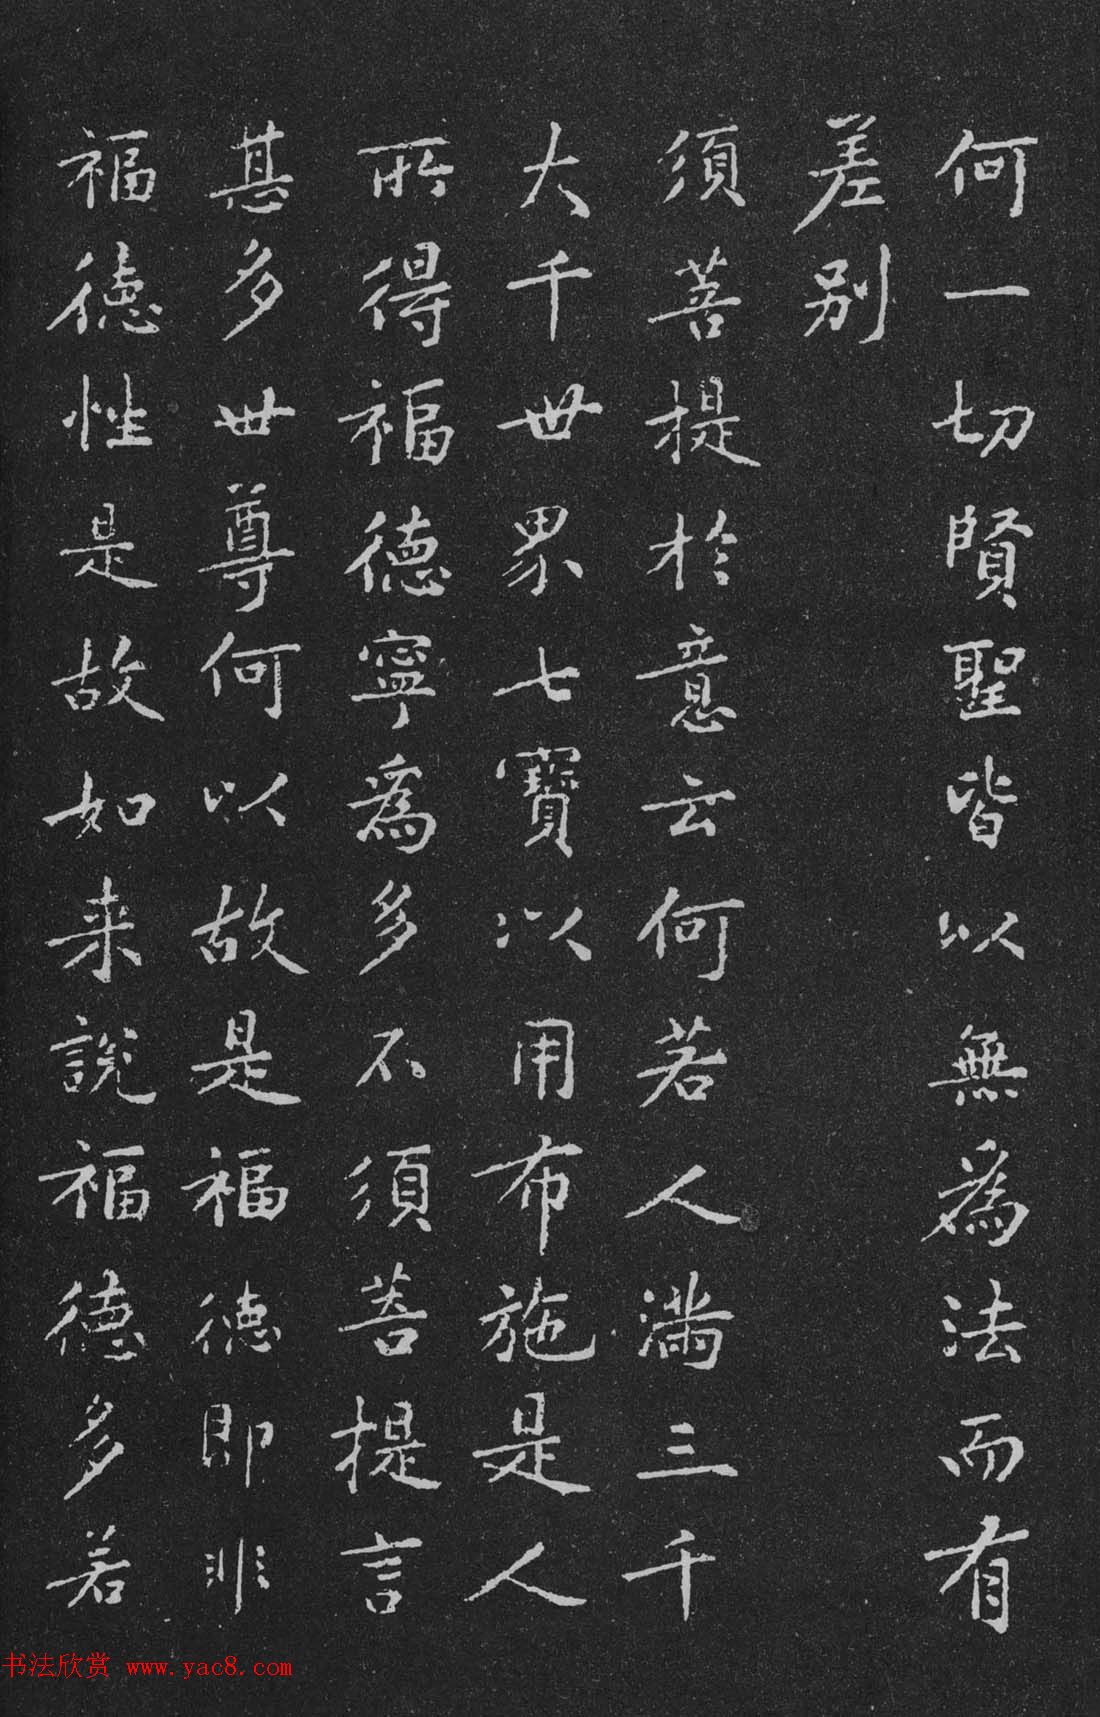 何一切賢聖皆以無為法而有
差别
須菩提於意云何若人滿三千
大千世界七寶以用布施是人
所得福德寧為多不須菩提言
甚多世尊何以故是福德即非
福德性是故如来說福德多若
书法欣赏 www.yac8.com